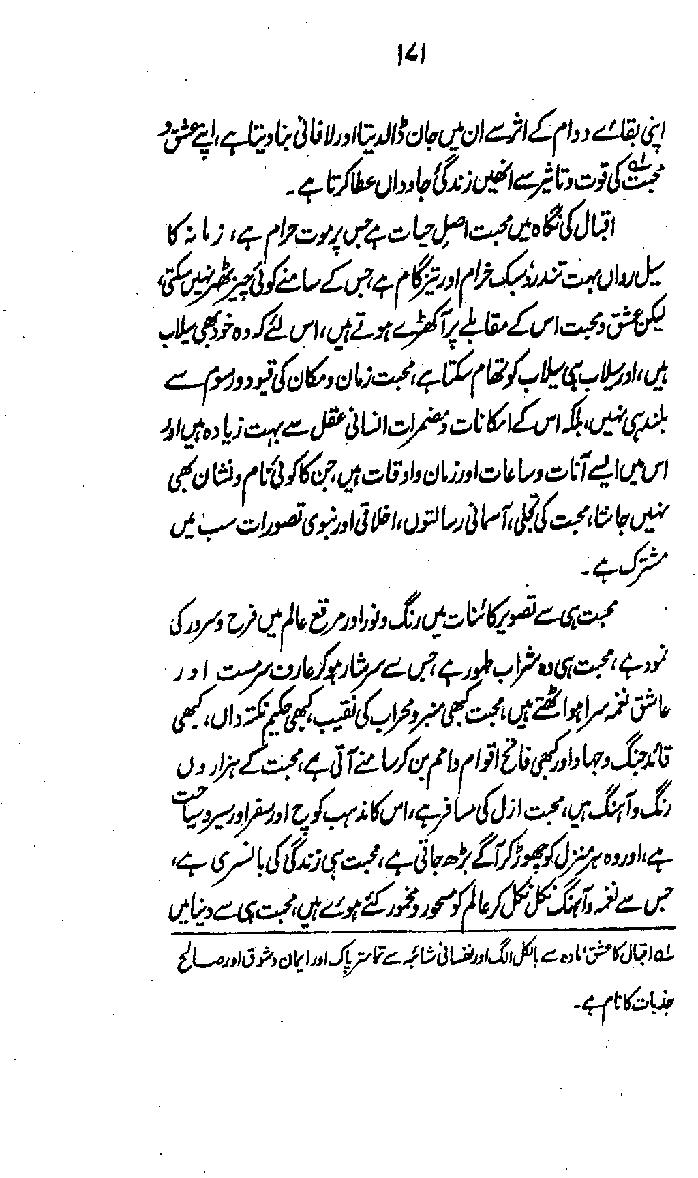 ۱۷۱
اپنی بقائے دوام کے اثر سے ان میں جان ڈالدیتا اور لافانی بنا دیتا ہے، اپنے عشق و
محبت؂۱ کی قوت و تاثیر سے انھیں زندگیٔ جاوداں عطا کرتا ہے۔
اقبال کی نگاہ میں محبت اصلِ حیات ہے جس پر موت حرام ہے، زمانہ کا
سیل رواں بہت تندرو، سبک خرام اور تیز گام ہے، جس کے سامنے کوئی چیز ٹھہر نہیں سکتی،
لیکن عشق و محبت اس کے مقابلے پر آکھڑے ہوتے ہیں، اس لئے کہ وہ خود بھی سیلاب
ہیں، اور سیلاب ہی سیلاب کو تھام سکتا ہے، محبت زمان و مکان کی قیود و رسوم سے
بلند ہی نہیں، بلکہ اس کے امکانات و مضمرات انسانی عقل سے بہت زیادہ ہیں اور
اس میں ایسے آنات و ساعات اور زمان و اوقات ہیں، جن کا کوئی نام و نشان بھی
نہیں جانتا، محبت کی تجلی، آسمانی رسالتوں، اخلاقی اور نبوی تصورات سب میں
مشترک ہے۔
محبت ہی سے تصویر کائنات میں رنگ و نور اور مرقع عالم میں فرح و سرور کی
نمود ہے، محبت ہی وہ شراب طہور ہے، جس سے سرشار ہو کر عارف سرمست اور
عاشق نغمہ سرا ہو اٹھتے ہیں، محبت کبھی منبر و محراب کی نقیب، کبھی حکیم نکتہ داں، کبھی
قائد جنگ و جہاد اور کبھی فاتح اقوام و امم بن کر سامنے آتی ہے، محبت کے ہزاروں
رنگ و آہنگ ہیں، محبت ازل کی مسافر ہے، اس کا مذہب کوچ اور سفر اور سیر و سیاحت
ہے، اور وہ ہر منزل کو چھوڑ کر آگے بڑھ جاتی ہے، محبت ہی زندگی کی بانسری ہے،
جس سے نغمہ و آہنگ نکل نکل کر عالم کو مسحور و مخمور کئے ہوئے ہیں، محبت ہی سے دنیا میں
؂۱ اقبال کا عشق، مادہ سے بالکل الگ اور نفسانی شائبہ سے تمامتر پاک اور ایمان و شوق اور صالح
جذبات کا نام ہے۔